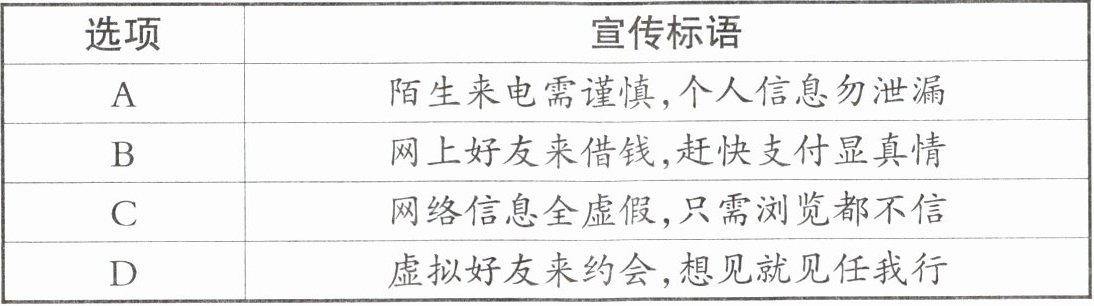 选项 宣传标语
A 陌生来电需谨慎,个人信息勿泄漏
B 网上好友来借钱,赶快支付显真情
C 网络信息全虚假,只需浏览都不信
D 虚拟好友来约会,想见就见任我行